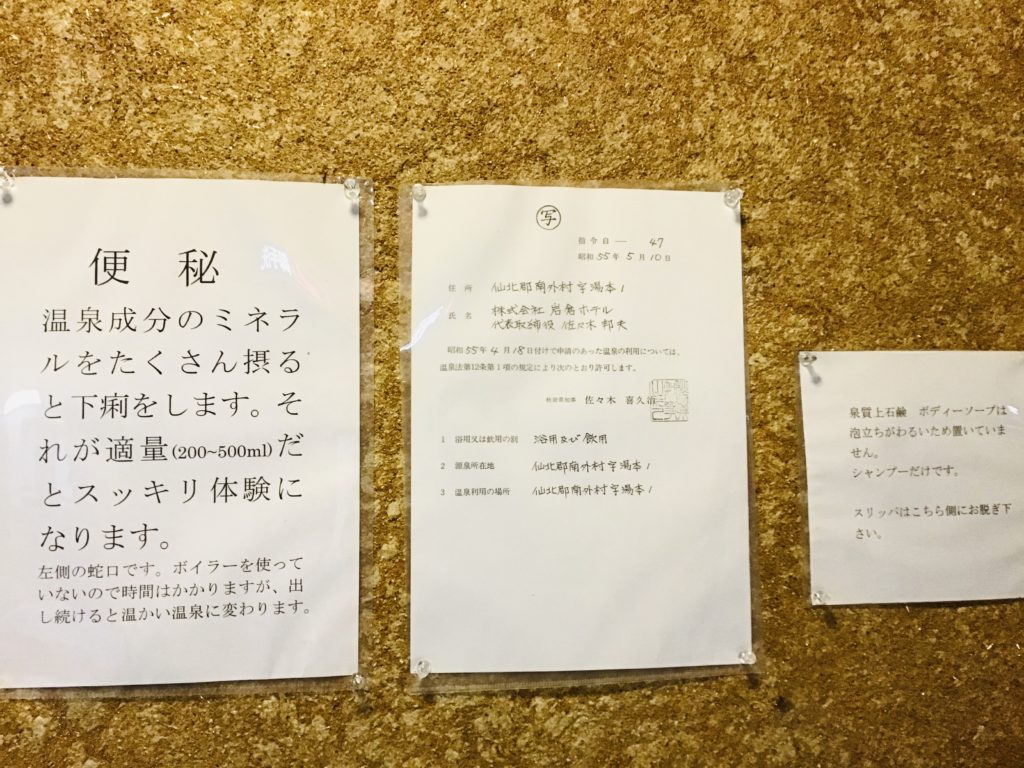 便 秘
温泉成分のミネラ
ルをたくさん摂る
と下痢をします。そ
れが適量(200~500ml)だ
とスッキリ体験に
なります。
左側の蛇口です。ボイラーを使って
いないので時間はかかりますが、出
し続けると温かい温泉に変わります。
写
指令自― 47
昭和55年5月10日
住所 仙北郡南外村字湯本1
氏名 株式会社 岩倉ホテル
代表取締役 佐々木 邦夫
昭和55年4月18日付けで申請のあった温泉の利用については、
温泉法第12条第1項の規定により次のとおり許可します。
秋田県知事 佐々木 喜久治
1 浴用又は飲用の別 浴用及び飲用
2 源泉所在地 仙北郡南外村字湯本1
3 温泉利用の場所 仙北郡南外村字湯本1
泉質上石鹸 ボディーソープは
泡立ちがわるいため置いていま
せん。
シャンプーだけです。
スリッパはこちら側にお脱ぎ下
さい。